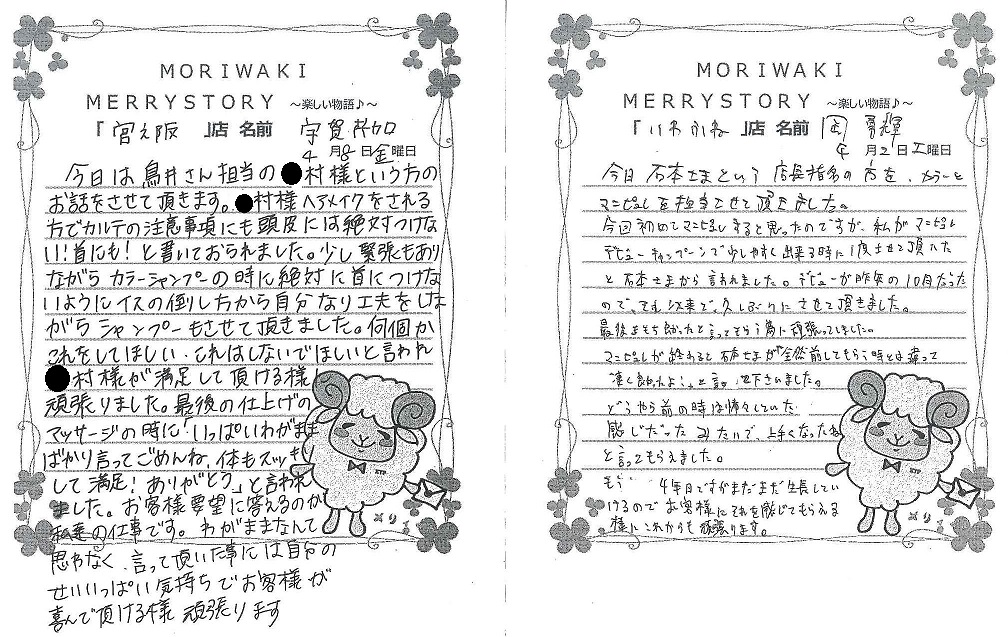 MORIWAKI
MERRYSTORY ～楽しい物語♪～
「宮之阪」店 名前 宇賀 
4月8日金曜日
今日は鳥井さん担当の●村様という方の
お話をさせて頂きます。●村様ヘアメイクをされる
方でカルテの注意事項にも頭皮には絶対つけな
い！首にも！と書いておられました。少し緊張もあり
ながらカラーシャンプーの時に絶対に首につけな
いようにイスの倒し方から自分なり工夫をしな
がらシャンプーもさせて頂きました。何個か
これをしてほしい、これはしないでほしいと言われ
●村様が満足して頂ける様
頑張りました。最後の仕上げの
マッサージの時に「いっぱいわがまま
ばかり言ってごめんね、体もスッキリ
して満足！ありがとう」と言われ
ました。お客様要望に答えるのが
私達の仕事です。わがままなんて
思わなく、言って頂いた事には自分の
せいいっぱい気持ちでお客様が
喜んで頂ける様 頑張ります
MORIWAKI
MERRYSTORY ～楽しい物語♪～
「いわふね」店 名前 岡 勇輝
4月2日土曜日
今日 石本さまという 店長指名の方を、カラーと
マニピュレを担当させて頂きました。
今回初めてマニピュレすると思ったのですが、私がマニピュレ
デビューキャンペーンで少しやすく出来る時に1度させて頂いた
と石本さまから言われました。デビューが昨年の10月だった
ので、それ以来で久しぶりにさせて頂きました。
最後まで 言ってもらう為に頑張っていました。
マニピュレが終わると石本さまが全然前してもらう時とは違って
凄く よ！と言って下さいました。
どうやら前の時は していた
感じだったみたいで、上手くなったね
と言ってもらえました。
もう 4年目ですがまだまだ生長してい
けるのでお客様にそれを感じてもらえる
様にこれからも頑張ります。